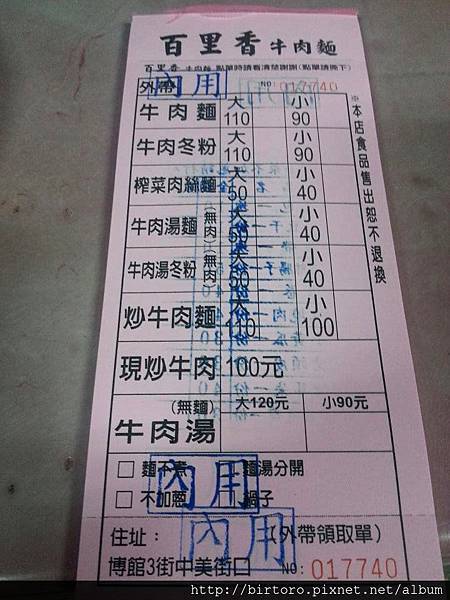 百里香牛肉麵
百里香 牛肉麵 點單時請看清楚謝謝(點單請撕下)
外帶 內用 NO 017740
牛肉麵 大110 小90
牛肉冬粉 大110 小90
榨菜肉絲麵 大50 小40
牛肉湯麵(無肉) 大50 小40
牛肉湯冬粉(無肉) 大50 小40
炒牛肉麵 大110 小100
現炒牛肉 100元
牛肉湯(無麵) 大120元 小90元
※本店食品售出恕不退換
□ 麵不煮 □ 麵湯分開
□ 不加蔥 □ 鍋子
內用
內用
住址: (外帶領取單)
博館3街中美街口 NO: 017740
http://birtoro.pixnet.net/album